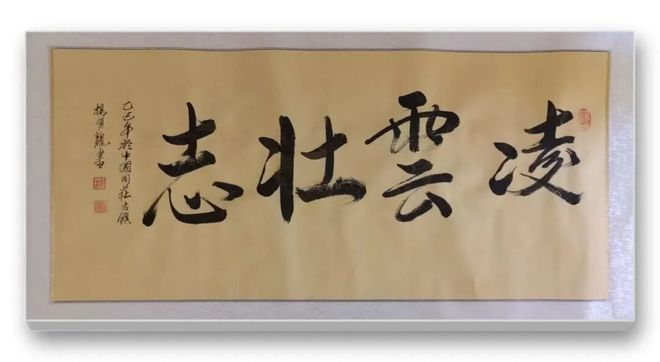 凌雲壯志
乙巳年於中國周莊古鎮
楊龍書